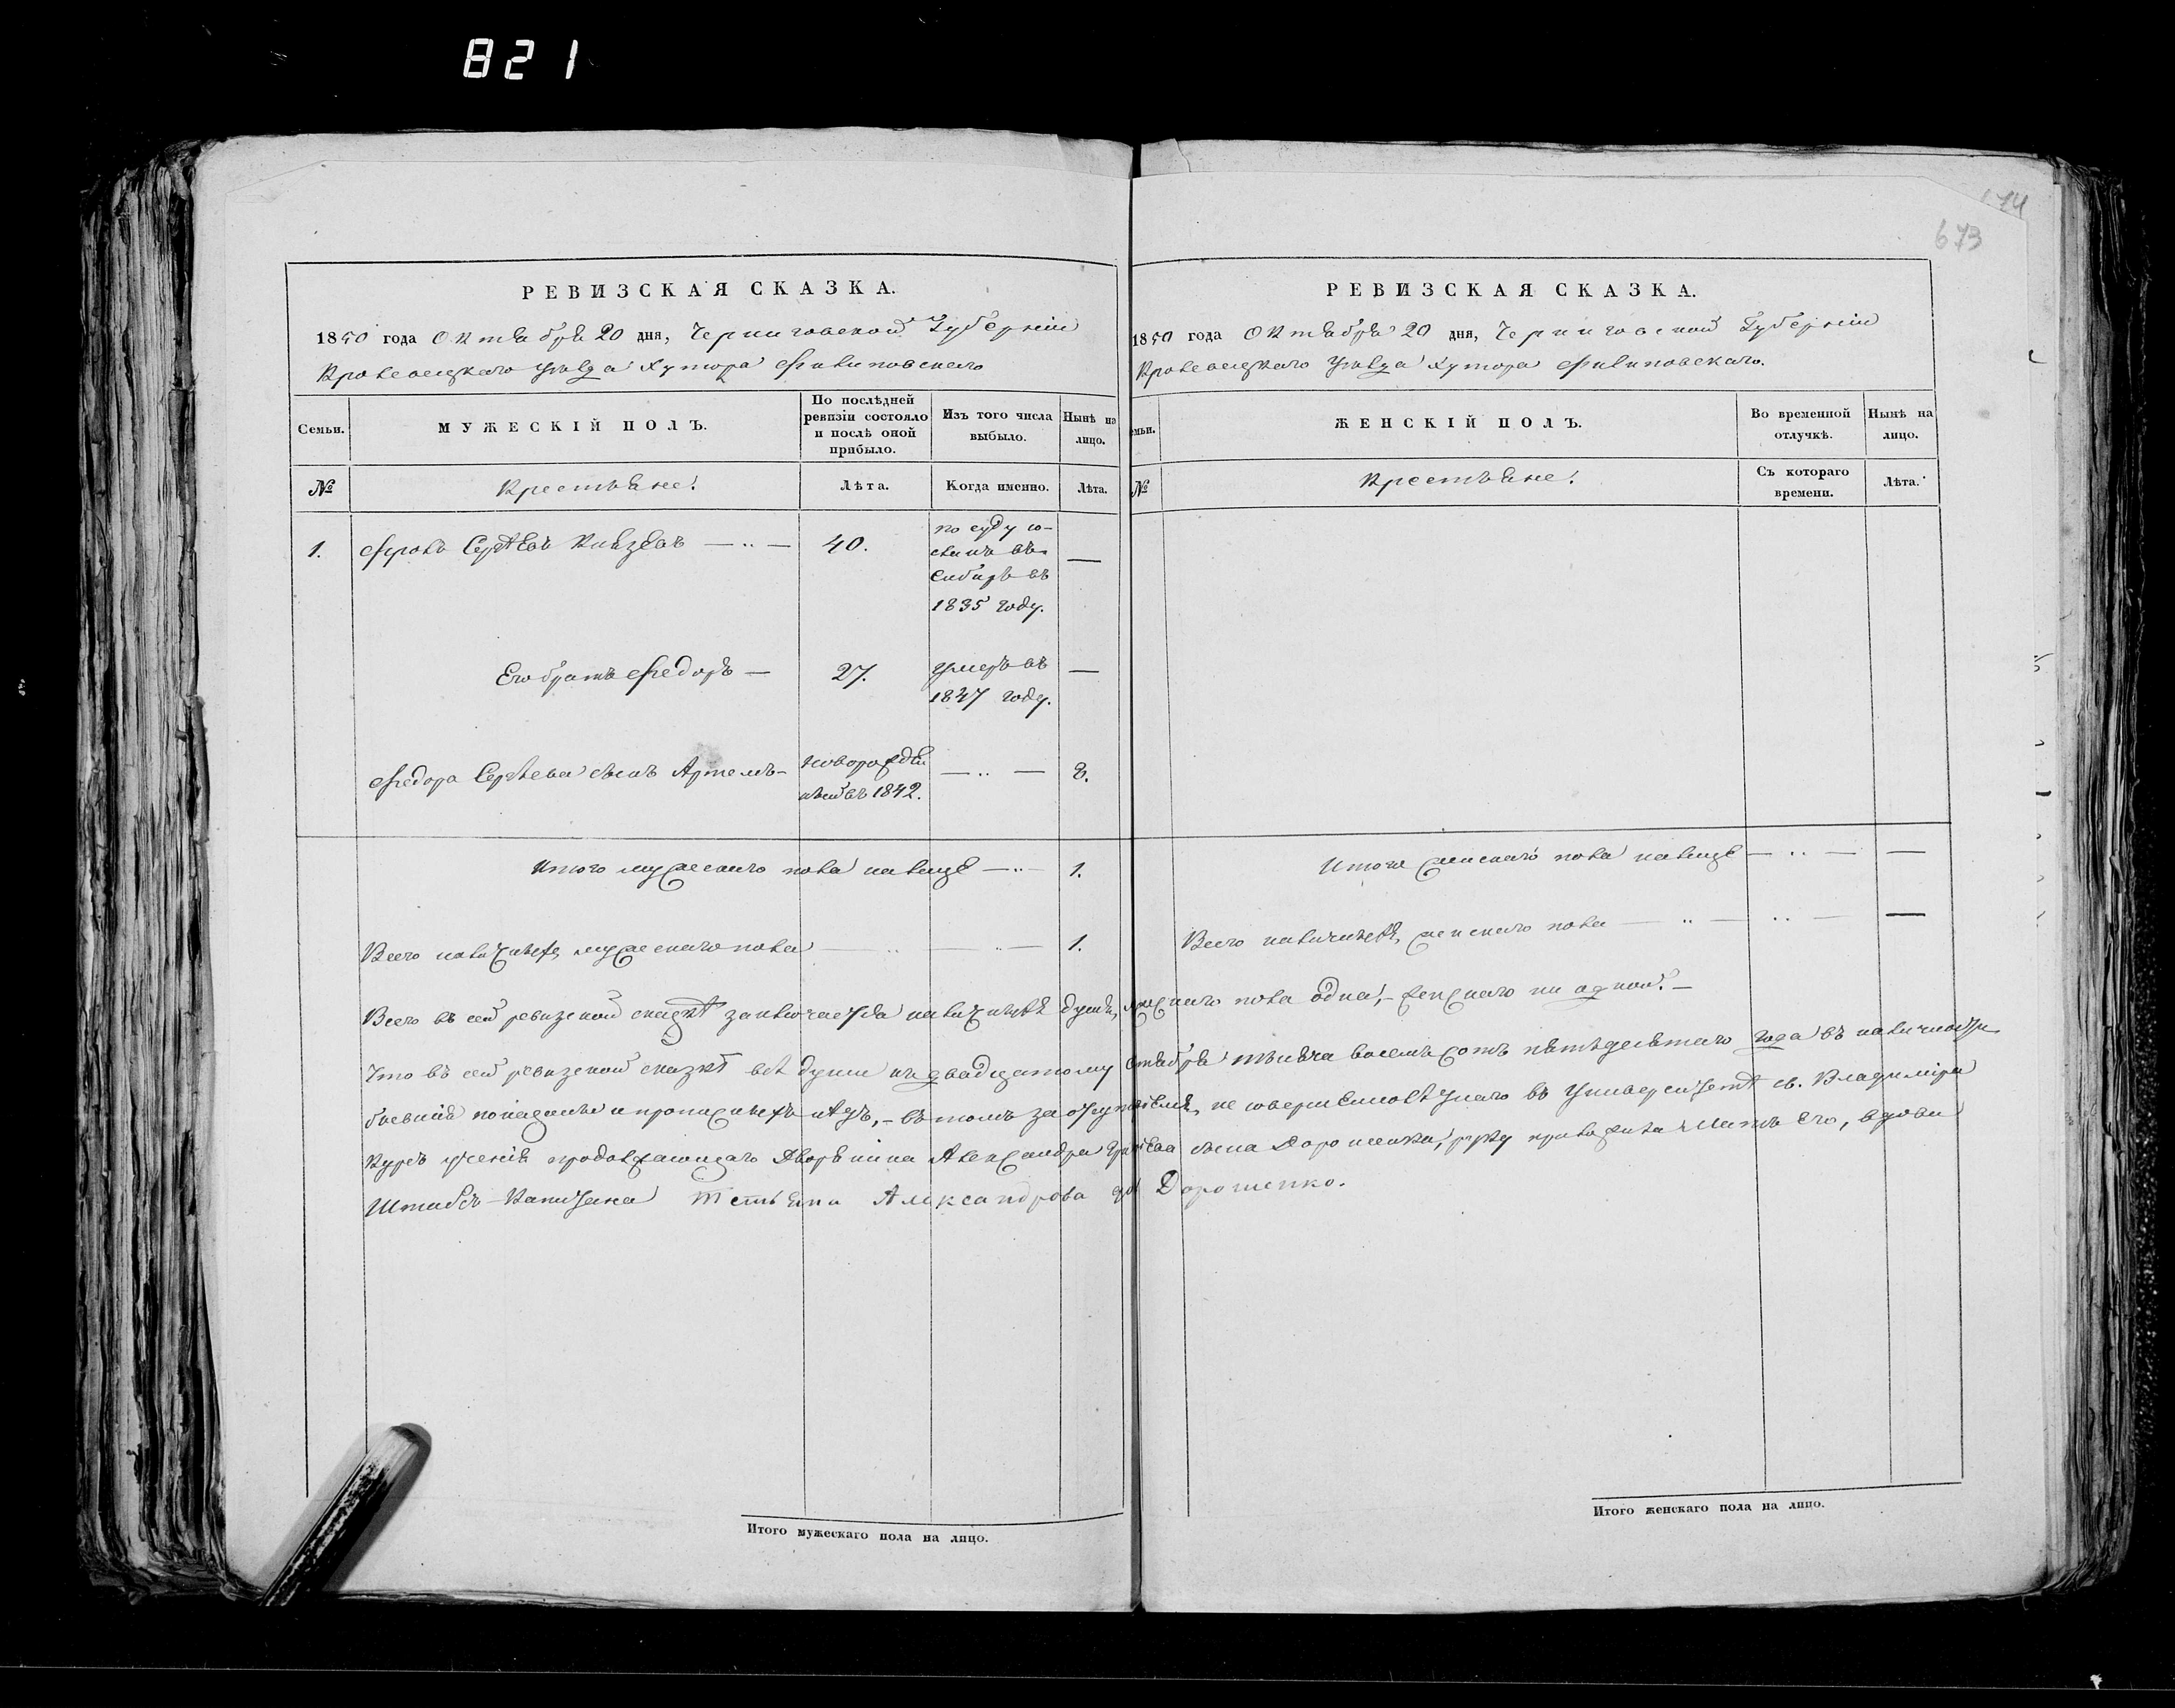 821
674
673
РЕВИЗСКАЯ СКАЗКА.
1850 года Октября 20 дня, Черниговской Губерніи
Кролевецкаго уѣзда хутора Филиповскаго
Семьи.
МУЖЕСКІЙ ПОЛЪ.
По послѣдней ревизіи состояло и послѣ оной прибыло.
Изъ того числа выбыло.
Нынѣ на лицо.
№
Крестьяне.
Лѣта.
Когда именно.
Лѣта.
1. Фролъ Сергѣевъ Князевъ — 40. по суду со-
сланъ въ
Сибирь въ
1835 году. —
Его братъ Федоръ — 27. умеръ въ
1847 году. —
Федора Сергѣева сынъ Артемъ - новорожден
ный въ 1842. — 8.
Итого мужескаго пола на лицѣ — 1.
Всего наличныхъ мужескаго пола — 1.
РЕВИЗСКАЯ СКАЗКА.
1850 года Октября 20 дня, Черниговской Губерніи
Кролевецкаго уѣзда хутора Филиповскаго.
емьи.
ЖЕНСКІЙ ПОЛЪ.
Во временной отлучкѣ.
Нынѣ на лицо.
№
Крестьяне.
Съ котораго времени.
Лѣта.
Итого женскаго пола на лицѣ — —
Всего наличныхъ женскаго пола — —
Всего въ сей ревизской сказкѣ заключается наличныхъ душъ, мужскаго пола одна, - женскаго ни одной. —
Что въ сей ревизской сказкѣ всѣ души къ двадцатому октября тысяча восемьсотъ пятьдесятаго года въ наличности
бывшія показаны и прописныхъ нѣтъ, - въ томъ за отсутствіемъ, не совершеннолѣтняго въ Университетѣ св. Владиміра
курсъ ученія продолжающаго Дворянина Александра сына Дорошенка, руку приложила Мать его, вдова
Штабсъ-Капитана Александрова Дорошенко.
Итого мужескаго пола на лицо.
Итого женскаго пола на лицо.